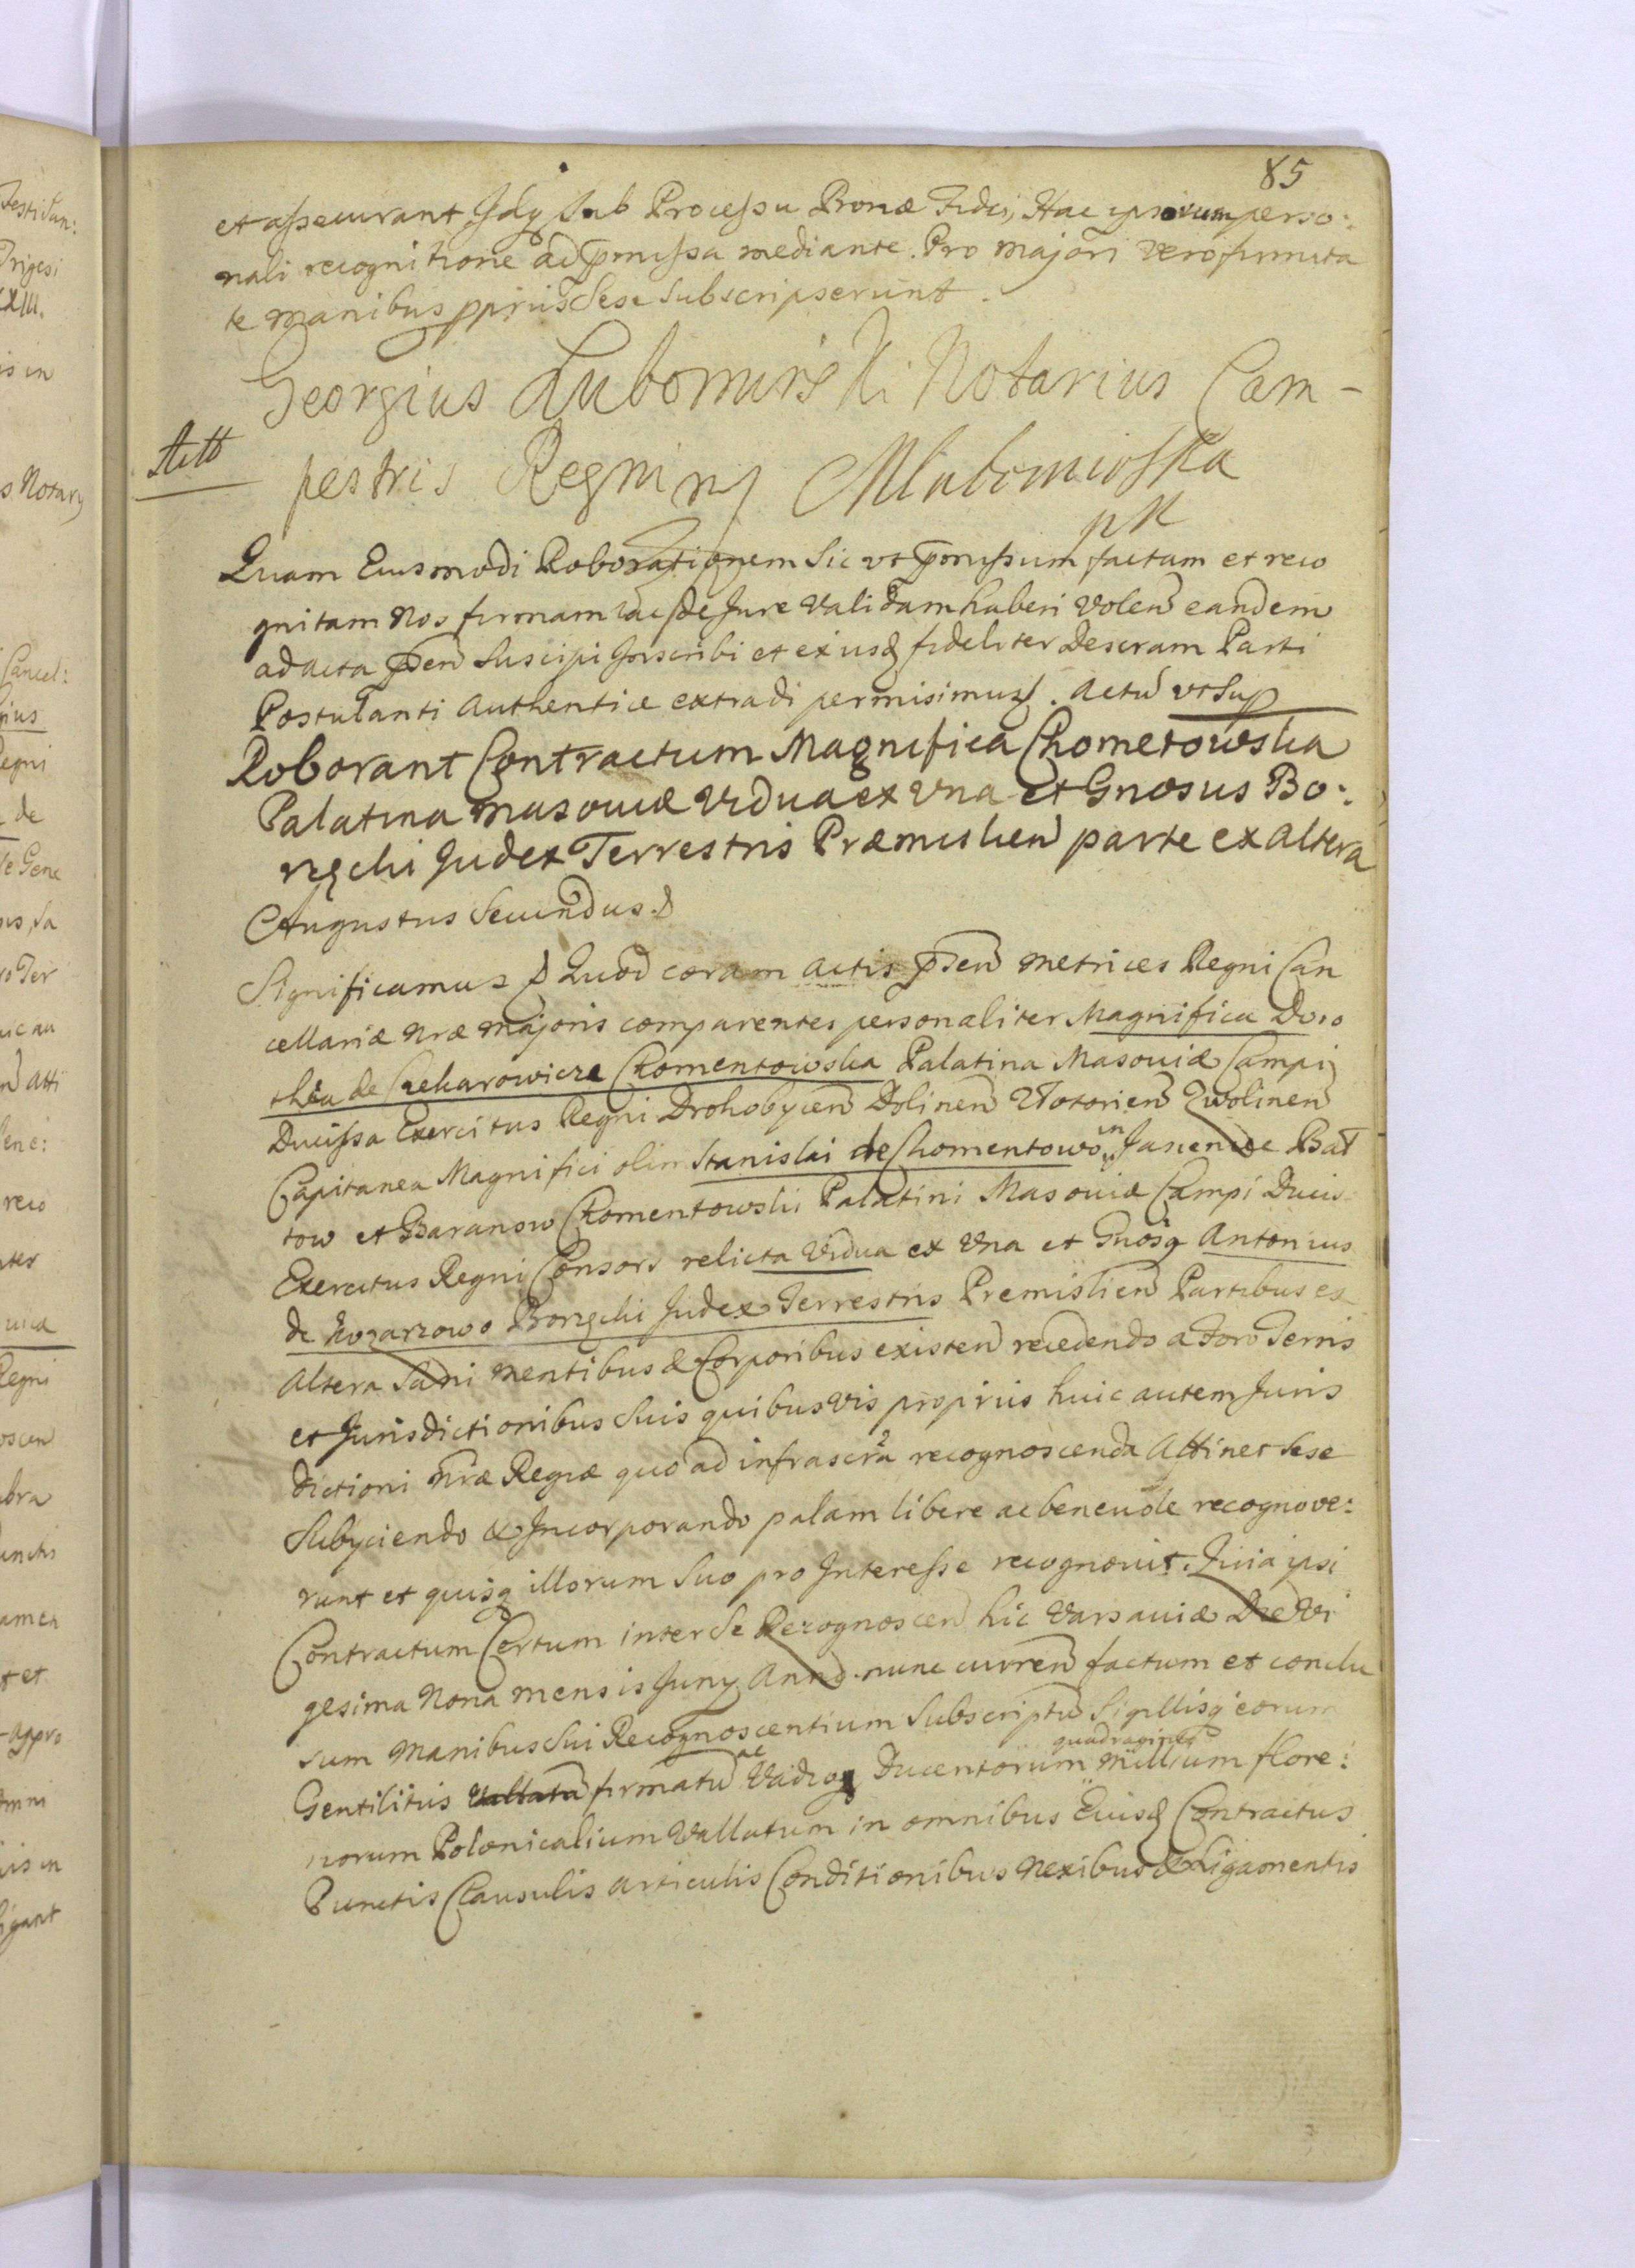 85
et assecurant Idq sub Processu Bonæ Fidei, Hac ipsorum perso:
nali recognitione ad pmissa mediante. Pro majori vero firmita
te manibus ppriis sese subscripserunt.
Georgius Lubomirski Notarius Cam-
pestris Regni mp MLubomirska
Quam Eiusmodi Roborationem sic vt pmissum factam et reco
gnitam Nos firmam ac de Jure Validam haberi volen eandem
ad acta pñ suscipi Inscribi et ex iisd fideliter Descram Parti
Postulanti Authentice extradi permisimus. Actu vt Sup
Roborant Contractum Magnifica Chometowska
Palatina Masoviæ Vidua ex Vna et Gnosus Bo:
Judex Terrestris Præmislien parte ex Altera
Augustus Secundus
Significamus Quod coram Actis pñ Metrices Regni Can
cellariæ nræ Majoris comparentes personaliter Magnifica Doro
thea de Chomentowska Palatina Masoviæ Campi
Ducissa Exercitus Regni Drohobycen Dolinen Zwolinen
Capitanea Magnifici olim Stanislai de Chomentow in
et Baranow Chomentowski Palatini Masoviæ Campi Ducis
Exercitus Regni Consors relicta Vidua ex Vna et Gnosq Antonius
de Judex Terrestris Premislien Partibus ex
Altera Sani Mentibus & Corporibus existen recedendo a Foro Terris
et Jurisdictionibus suis quibusvis propriis huic autem Juris
dictioni nræ Regiæ quo ad infrascra recognoscenda Attinet sese
Subyciendo & Incorporando palam libere ac benevole recognove:
runt et quisq illorum suo pro Interesse recognovit. Quia ipsi
Contractum Certum inter se Recognoscen hic Varsaviæ Die Vi
gesima Nona mensis Juny Anno nunc curren factum et conclu
sum Manibus sui Recognoscentium Subscriptu Sigillisq eorum
Gentilitiis firmatu ac Vadioq Ducentorum quadraginta Millium flore:
norum Polonicalium Vallatum in omnibus Eiusd Contractus
Punctis Clausulis Articulis Conditionibus Nexibus & Ligamentis